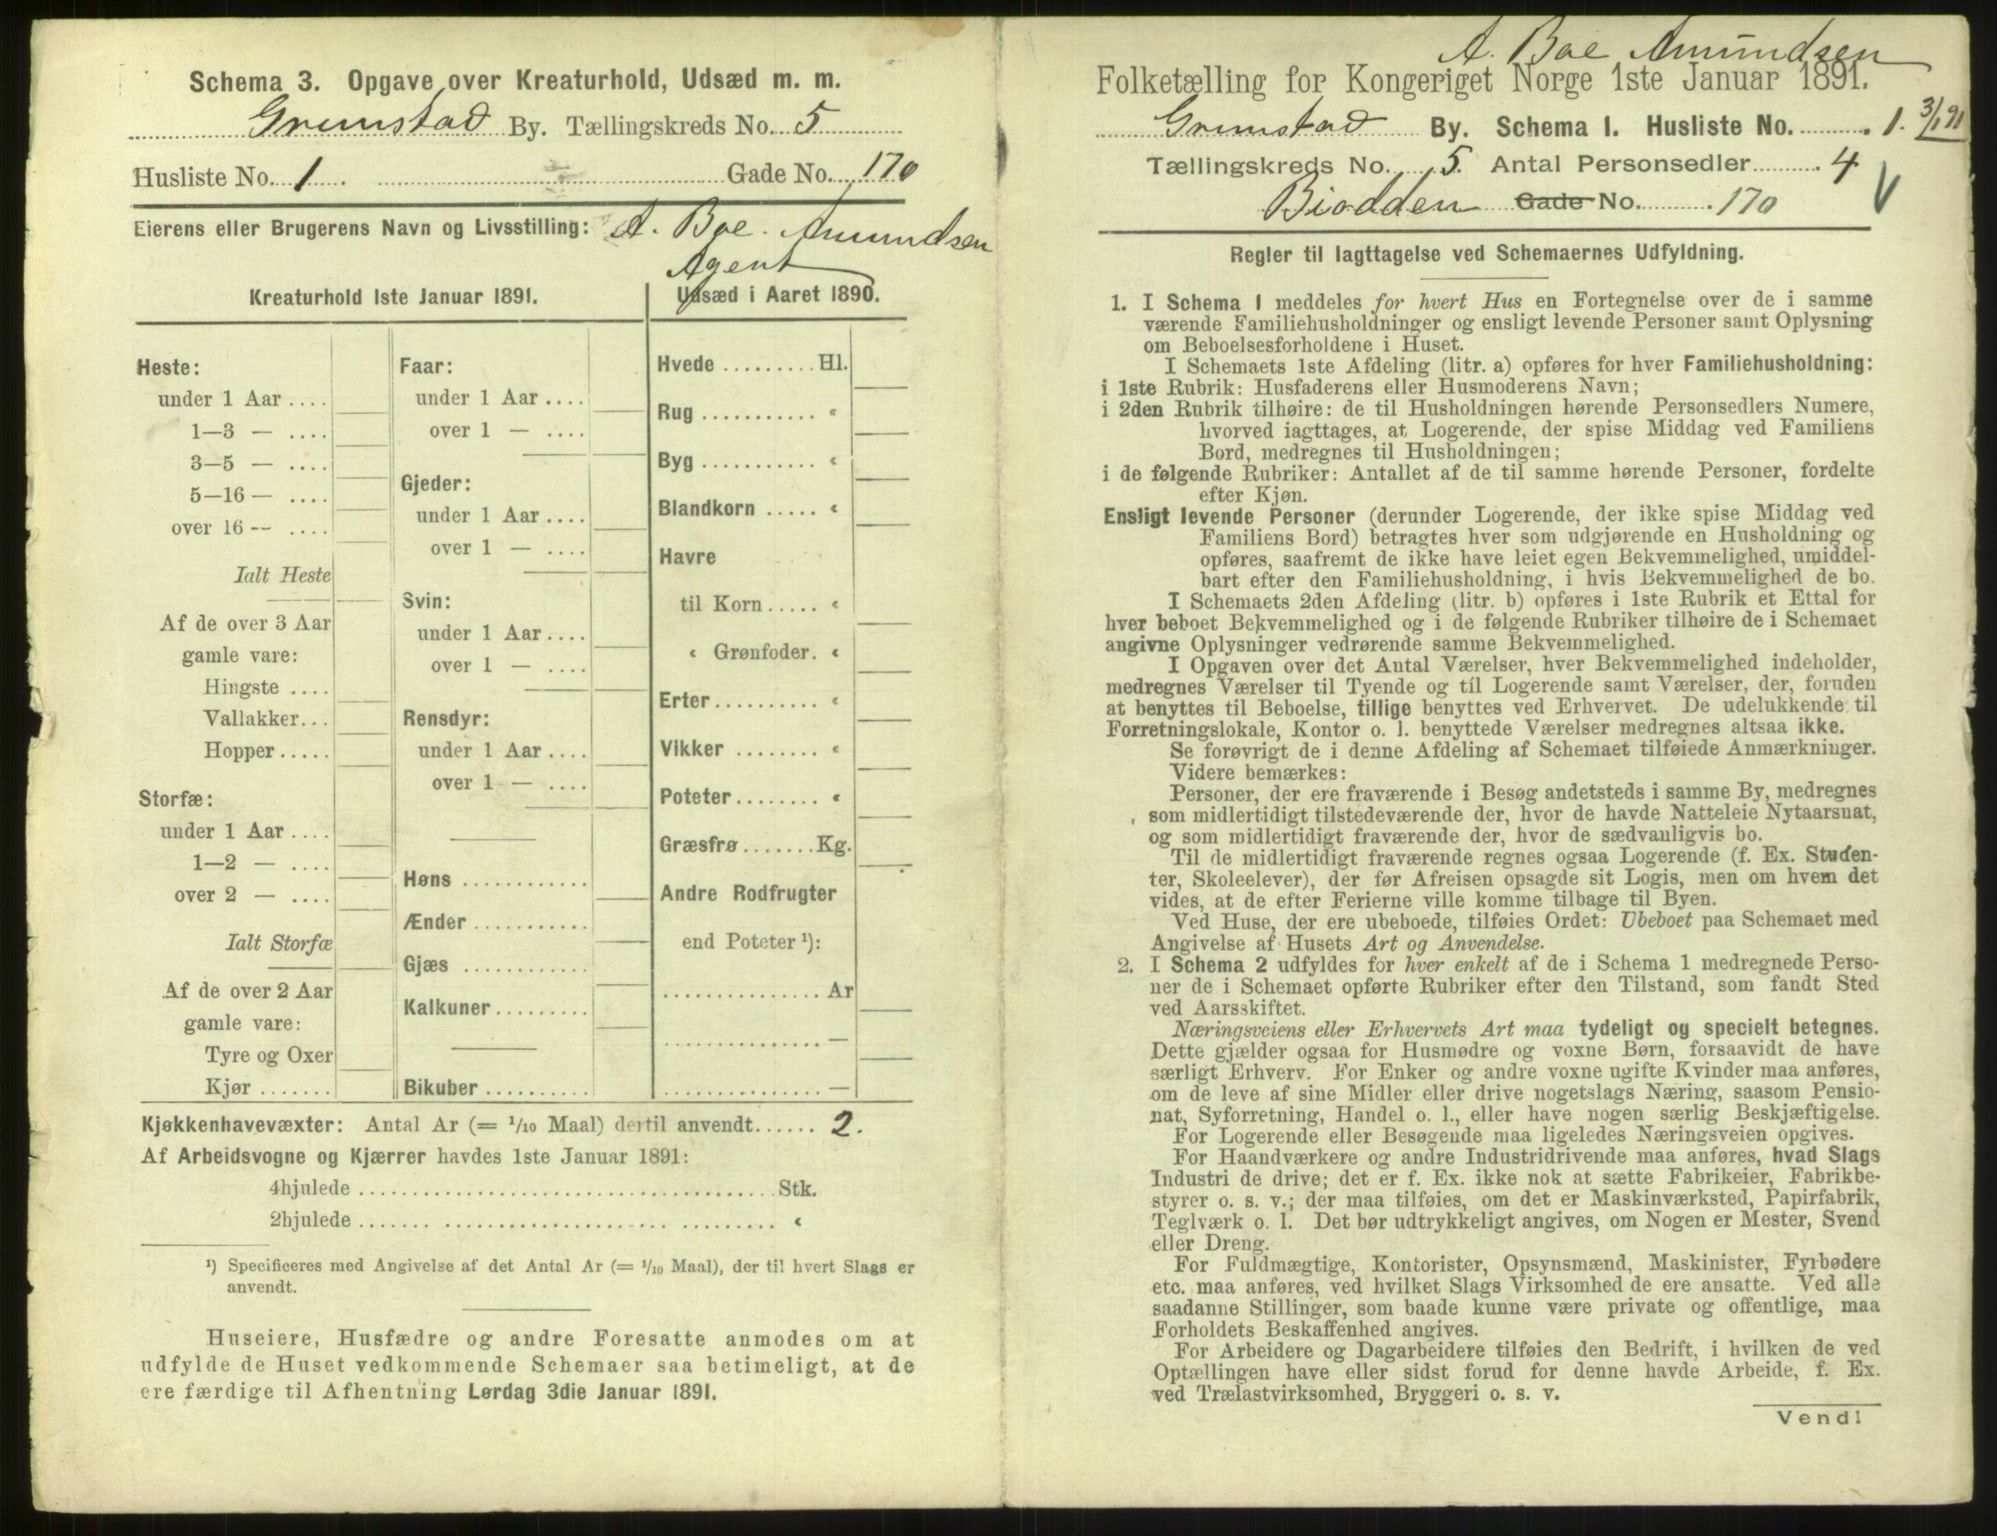 Schema 3. Opgave over Kreaturhold, Udsæd m. m.
Grimstad By. Tællingskreds No. 5
Husliste No. 1 Gade No. 170
Eierens eller Brugerens Navn og Livsstilling: A. Boe Amundsen
Agent
Kreaturhold 1ste Januar 1891.
Heste:
under 1 Aar ....
1—3 — ....
3—5 — ....
5—16 — ....
over 16 -- ....
Ialt Heste
Af de over 3 Aar
gamle vare:
Hingste ....
Vallakker...
Hopper .....
Storfæ:
under 1 Aar ....
1—2 — ....
over 2 — ....
Ialt Storfæ
Af de over 2 Aar
gamle vare:
Tyre og Oxer
Kjør ........
Faar:
under 1 Aar ....
over 1 — ....
Gjeder:
under 1 Aar ....
over 1 — ....
Svin:
under 1 Aar ....
over 1 — ....
Rensdyr:
under 1 Aar ....
over 1 — ....
Høns ............
Ænder ...........
Gjæs ............
Kalkuner.........
Bikuber ..........
Udsæd i Aaret 1890.
Hvede ......... Hl.
Rug ........... «
Byg ........... «
Blandkorn ..... «
Havre
til Korn ..... «
« Grønfoder. «
Erter.......... «
Vikker ........ «
Poteter........ «
Græsfrø.......Kg.
Andre Rodfrugter
end Poteter ¹):
............... Ar
............... —
............... —
Kjøkkenhavevæxter: Antal Ar (= 1/10 Maal) dertil anvendt...... 2.
Af Arbeidsvogne og Kjærrer havdes 1ste Januar 1891:
4hjulede ....................................... Stk.
2hjulede ....................................... «
¹) Specificeres med Angivelse af det Antal Ar (= 1/10 Maal), der til hvert Slags er
anvendt.
Huseiere, Husfædre og andre Foresatte anmodes om at
udfylde de Huset vedkommende Schemaer saa betimeligt, at de
ere færdige til Afhentning Lørdag 3die Januar 1891.
A. Boe Amundsen
Folketælling for Kongeriget Norge 1ste Januar 1891.
Grimstad By. Schema 1. Husliste No. 1. 3/1 91
Tællingskreds No. 5. Antal Personsedler 4
Biodden Gade No. 170
Regler til Iagttagelse ved Schemaernes Udfyldning.
1. I Schema 1 meddeles for hvert Hus en Fortegnelse over de i samme
værende Familiehusholdninger og ensligt levende Personer samt Oplysning
om Beboelsesforholdene i Huset.
I Schemaets 1ste Afdeling (litr. a) opføres for hver Familiehusholdning:
i 1ste Rubrik: Husfaderens eller Husmoderens Navn;
i 2den Rubrik tilhøire: de til Husholdningen hørende Personsedlers Numere,
hvorved iagttages, at Logerende, der spise Middag ved Familiens
Bord, medregnes til Husholdningen;
i de følgende Rubriker: Antallet af de til samme hørende Personer, fordelte
efter Kjøn.
Ensligt levende Personer (derunder Logerende, der ikke spise Middag ved
Familiens Bord) betragtes hver som udgjørende en Husholdning og
opføres, saafremt de ikke have leiet egen Bekvemmelighed, umiddel-
bart efter den Familiehusholdning, i hvis Bekvemmelighed de bo.
I Schemaets 2den Afdeling (litr. b) opføres i 1ste Rubrik et Ettal for
hver beboet Bekvemmelighed og i de følgende Rubriker tilhøire de i Schemaet
angivne Oplysninger vedrørende samme Bekvemmelighed.
I Opgaven over det Antal Værelser, hver Bekvemmelighed indeholder,
medregnes Værelser til Tyende og til Logerende samt Værelser, der, foruden
at benyttes til Beboelse, tillige benyttes ved Erhvervet. De udelukkende til
Forretningslokale, Kontor o. l. benyttede Værelser medregnes altsaa ikke.
Se forøvrigt de i denne Afdeling af Schemaet tilføiede Anmærkninger.
Videre bemærkes:
Personer, der ere fraværende i Besøg andetsteds i samme By, medregnes
som midlertidigt tilstedeværende der, hvor de havde Natteleie Nytaarsnat,
og som midlertidigt fraværende der, hvor de sædvanligvis bo.
Til de midlertidigt fraværende regnes ogsaa Logerende (f. Ex. Studen-
ter, Skoleelever), der før Afreisen opsagde sit Logis, men om hvem det
vides, at de efter Ferierne ville komme tilbage til Byen.
Ved Huse, der ere ubeboede, tilføies Ordet: Ubeboet paa Schemaet med
Angivelse af Husets Art og Anvendelse.
2. I Schema 2 udfyldes for hver enkelt af de i Schema 1 medregnede Perso-
ner de i Schemaet opførte Rubriker efter den Tilstand, som fandt Sted
ved Aarsskiftet.
Næringsveiens eller Erhvervets Art maa tydeligt og specielt betegnes.
Dette gjælder ogsaa for Husmødre og voxne Børn, forsaavidt de have
særligt Erhverv. For Enker og andre voxne ugifte Kvinder maa anføres,
om de leve af sine Midler eller drive nogetslags Næring, saasom Pensio-
nat, Syforretning, Handel o. l., eller have nogen særlig Beskjæftigelse.
For Logerende eller Besøgende maa ligeledes Næringsveien opgives.
For Haandværkere og andre Industridrivende maa anføres, hvad Slags
Industri de drive; det er f. Ex. ikke nok at sætte Fabrikeier, Fabrikbe-
styrer o. s. v.; der maa tilføies, om det er Maskinværksted, Papirfabrik,
Teglværk o. l. Det bør udtrykkeligt angives, om Nogen er Mester, Svend
eller Dreng.
For Fuldmægtige, Kontorister, Opsynsmænd, Maskinister, Fyrbødere
etc. maa anføres, ved hvilket Slags Virksomhed de ere ansatte. Ved alle
saadanne Stillinger, som baade kunne være private og offentlige, maa
Forholdets Beskaffenhed angives.
For Arbeidere og Dagarbeidere tilføies den Bedrift, i hvilken de ved
Optællingen have eller sidst forud for denne havde Arbeide, f. Ex.
ved Trælastvirksomhed, Bryggeri o. s. v.
Vend!